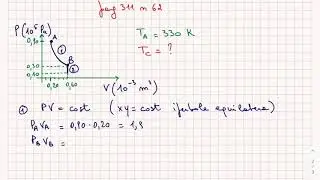 pag 311 n 62
P (10⁵ Pa)
T_A = 330 K
T_C = ?
0,90
A
①
B
0,30
②
0,10
0,20 0,60
V (10⁻³ m³)
① PV = cost ( xy = cost iperbole equilatera )
P_A V_A = 0,90 · 0,20 = 1,8
P_B V_B =